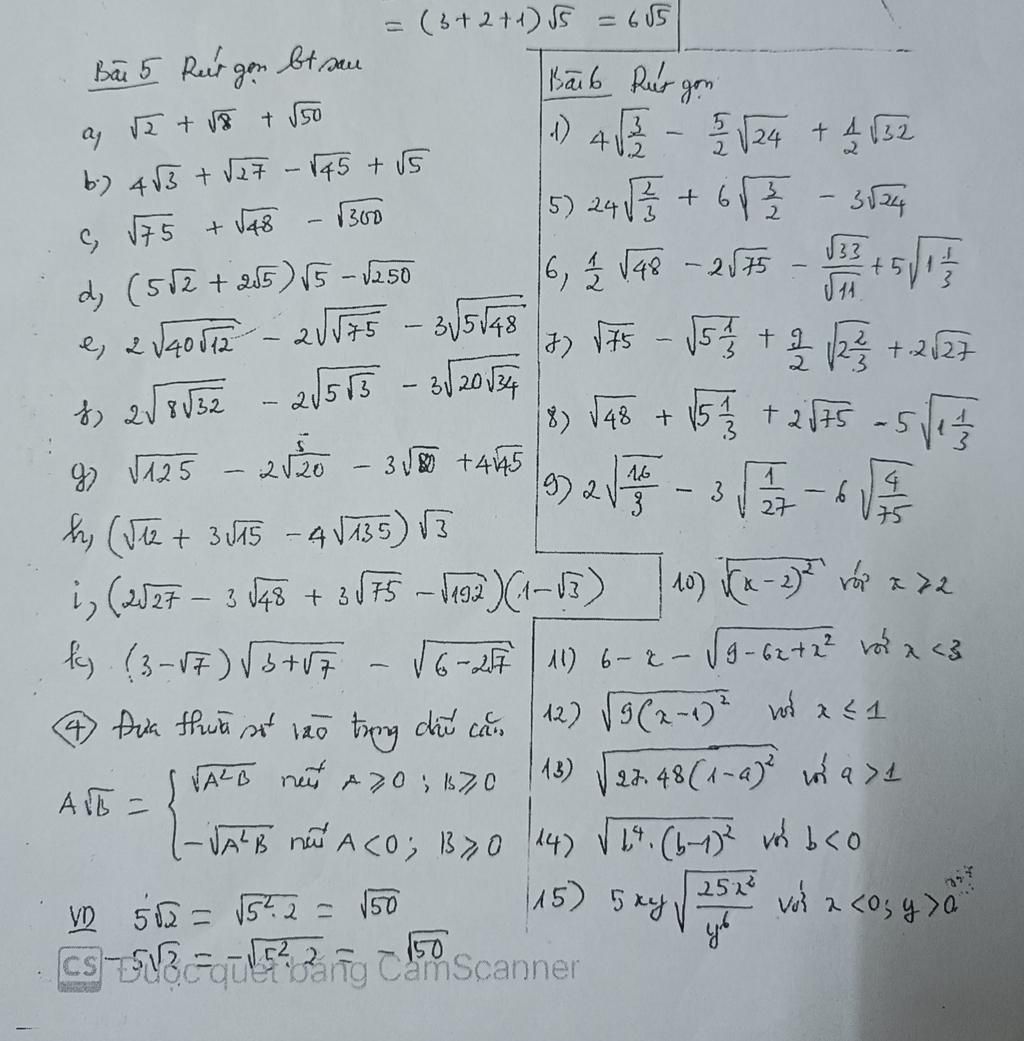 = (3+2+1)√5 = 6√5
Bài 5 Rút gọn bt sau
a, √2 + √8 + √50
b) 4√3 + √27 - √45 + √5
c, √75 + √48 - √300
d, (5√2 + 2√5)√5 - √250
e, 2√(40√12) - 2√(√75) - 3√(5√48)
f) 2√(8√32) - 2√(5√3) - 3√(20√34)
g) √125 - 2√20 - 3√80 + 4√45
h, (√12 + 3√15 - 4√135)√3
i, (2√27 - 3√48 + 3√75 - √192)(1-√3)
k) (3-√7)√(3+√7) - √(6-2√7)
④ Đưa thừa số vào trong dấu căn
A√B = { √(A²B) nếu A ⩾ 0 ; B ⩾ 0
-√(A²B) nếu A < 0 ; B ⩾ 0
VD 5√2 = √(5².2) = √50
-5√2 = -√(5².2) = -√50
Bài 6 Rút gọn
1) 4√(3/2) - 5/2 √24 + 1/2 √32
5) 24√(2/3) + 6√(3/2) - 3√24
6, 1/2 √48 - 2√75 - √33/√11 + 5√(1 1/3)
7) √75 - √(5 1/3) + 9/2 √(2 2/3) + 2√27
8) √48 + √(5 1/3) + 2√75 - 5√(1 1/3)
9) 2√(16/3) - 3√(1/27) - 6√(4/75)
10) √(x-2)² với x ⩾ 2
11) 6-x-√(9-6x+x²) với x < 3
12) √(9(x-1)²) với x ≤ 1
13) √(27.48(1-a)²) với a > 1
14) √(b⁴.(b-1)²) với b < 0
15) 5xy√(25x²/y⁶) với x < 0; y > 0
CS Được quét bằng CamScanner